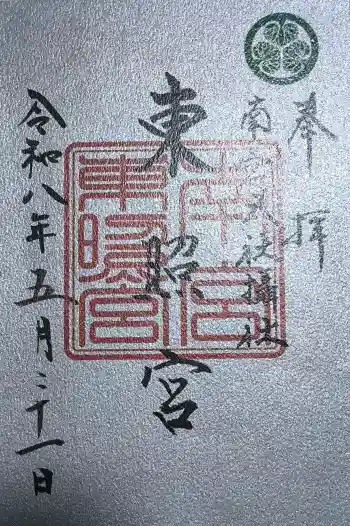 奉拝
南宮大社攝社
東照宮
令和八年五月三十一日
東照宮